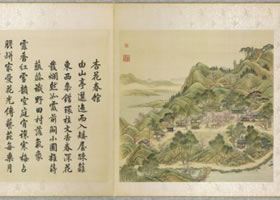 杏花春館
由山亭邐迤而入矮屋疏籬
東西參錯環植文杏春深花
發爛然如霞前闢小圃雜蒔
蔬蓏識野田村落氣象
霏香紅雪韻空庭肯讓寒梅占
膽瓶最愛花光傳藝苑每乘月